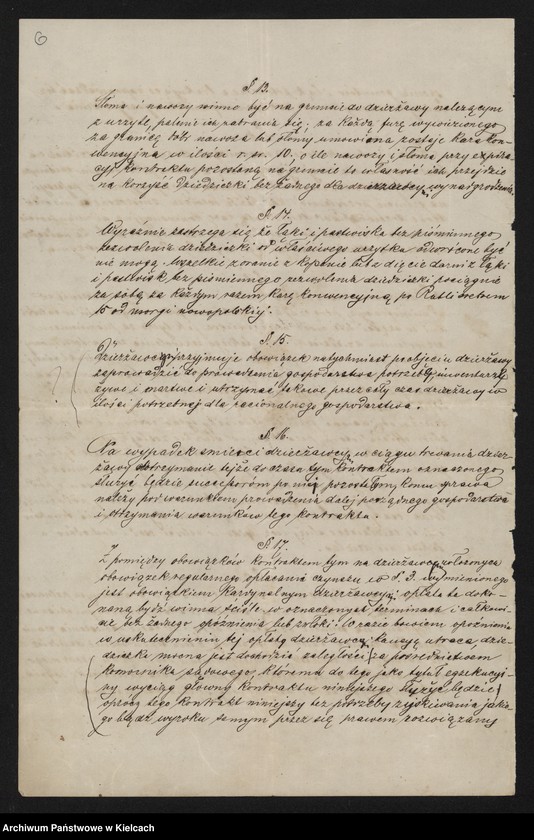 6
§ 13.
Słoma i nawozy winno być na gruncie do dzierżawy należącym
z użyte, palenie ich zabrania się, za każdą furę wywiezionego
za granicę tobi nawozu lub słomy umówiona zostaje kara kon-
wencyjna w ilości r. sr. 10, o ile nawozy i słoma przy expira-
cyi kontraktu pozostaną na gruncie to własność ich przejdzie
na korzyść Dziedziczki bez żadnego dla dzierżawcy wynagrodzenia.
§ 14.
Wyraźnie zastrzega się że łąki i pastwiska bez piśmiennego
zezwolenia dziedziczki od właściwego użytku odwrócone być
nie mogą. Wszelkie zoranie z kopanie lub zdjęcie darni z łąki
i pastwisk bez piśmiennego zezwolenia dziedziczki pociągnie
za sobą za każdym razem karę konwencyjną po Rubli srebrem
15 od morgi nowopolskiej.
§ 15.
Dzierżawcy przyjmuje obowiązek natychmiast po objęciu dzierżawy
zaprowadzić do prowadzenia gospodarstwa potrzebny inwentarz
żywe i martwe i utrzymać takowe przez cały czas dzierżawy w
ilości potrzebnej dla racionalnego gospodarstwa.
§ 16.
Na wypadek śmierci dzierżawcy w ciągu trwania dzier-
żawy dotrzymanie tejże do czasu tym kontraktem oznaczonego
służyć będzie successorom po nim pozostałym, komu z prawa
należy pod warunkiem prowadzenia dalej porządnego gospodarstwa
i dotrzymania warunków tego kontraktu.
§ 17.
Z pomiędzy obowiązków kontraktem tym na dzierżawcę włożonych
obowiązek regularnego opłacania czynszu w § 3. wymienionego
jest obowiązkiem kardynalnym dzierżawcy, opłata ta doko-
naną być winna ściśle w oznaczonych terminach i całkowi-
cie bez żadnego opóźnienia lub zwłoki. W razie bowiem opóźnienia
w uskutecznieniu tej opłaty dzierżawca utraca, dzie-
dziczka mocna jest dochodzić zaległości za pośrednictwem
komornika sądowego, któremu do tego jako tytuł egzekucyj-
ny wyciąg główny kontraktu niniejszego służyć będzie
oprócz tego kontrakt niniejszy bez potrzeby zyskiwania jakie-
go bądź wyroku samym przez się prawem rozwiązany
Archiwum Państwowe w Kielcach